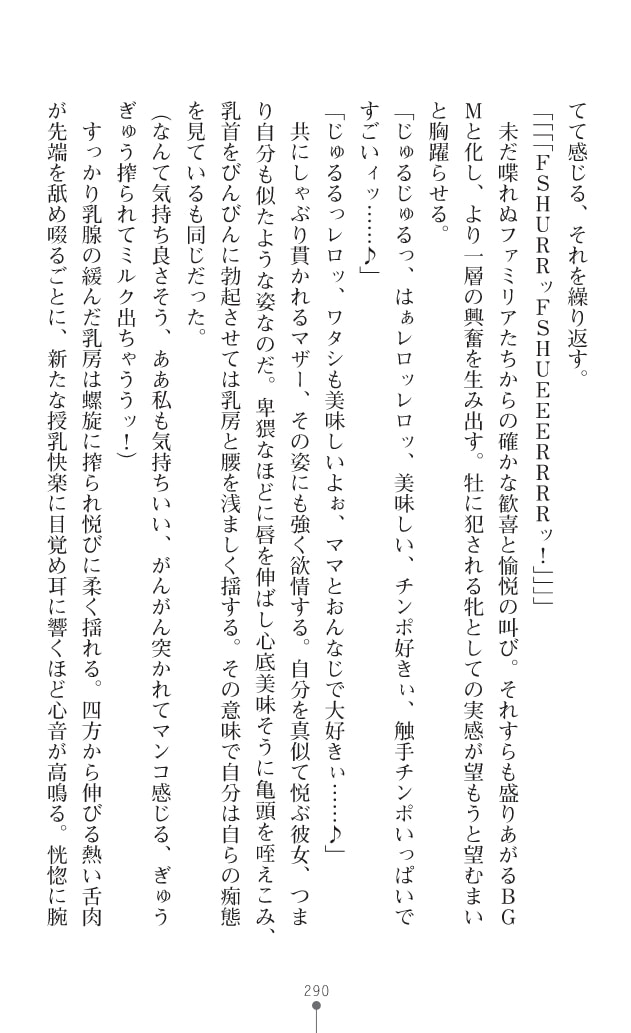 てて感じる、それを繰り返す。
「「「「FSHURRッFSHUEEERRRRッ！」」」」
　未だ喋れぬファミリアたちからの確かな歓喜と愉悦の叫び。それすらも盛りあがるBG
Mと化し、より一層の興奮を生み出す。牡に犯される牝としての実感が望もうと望むまい
と胸躍らせる。
「じゅるじゅるっ、はぁレロッレロッ、美味しい、チンポ好きぃ、触手チンポいっぱいで
すごいィッ……♪」
「じゅるるっレロッ、ワタシも美味しいよぉ、ママとおんなじで大好きぃ……♪」
　共にしゃぶり貫かれるマザー、その姿にも強く欲情する。自分を真似て悦ぶ彼女、つま
り自分も似たような姿なのだ。卑猥なほどに唇を伸ばし心底美味そうに亀頭を咥えこみ、
乳首をびんびんに勃起させては乳房と腰を浅ましく揺する。その意味で自分は自らの痴態
を見ているも同じだった。
（なんて気持ち良さそう、ああ私も気持ちいい、がんがん突かれてマンコ感じる、ぎゅう
ぎゅう搾られてミルク出ちゃううッ！）
　すっかり乳腺の緩んだ乳房は螺旋に搾られ悦びに柔く揺れる。四方から伸びる熱い舌肉
が先端を舐め啜るごとに、新たな授乳快楽に目覚め耳に響くほど心音が高鳴る。恍惚に腕
290